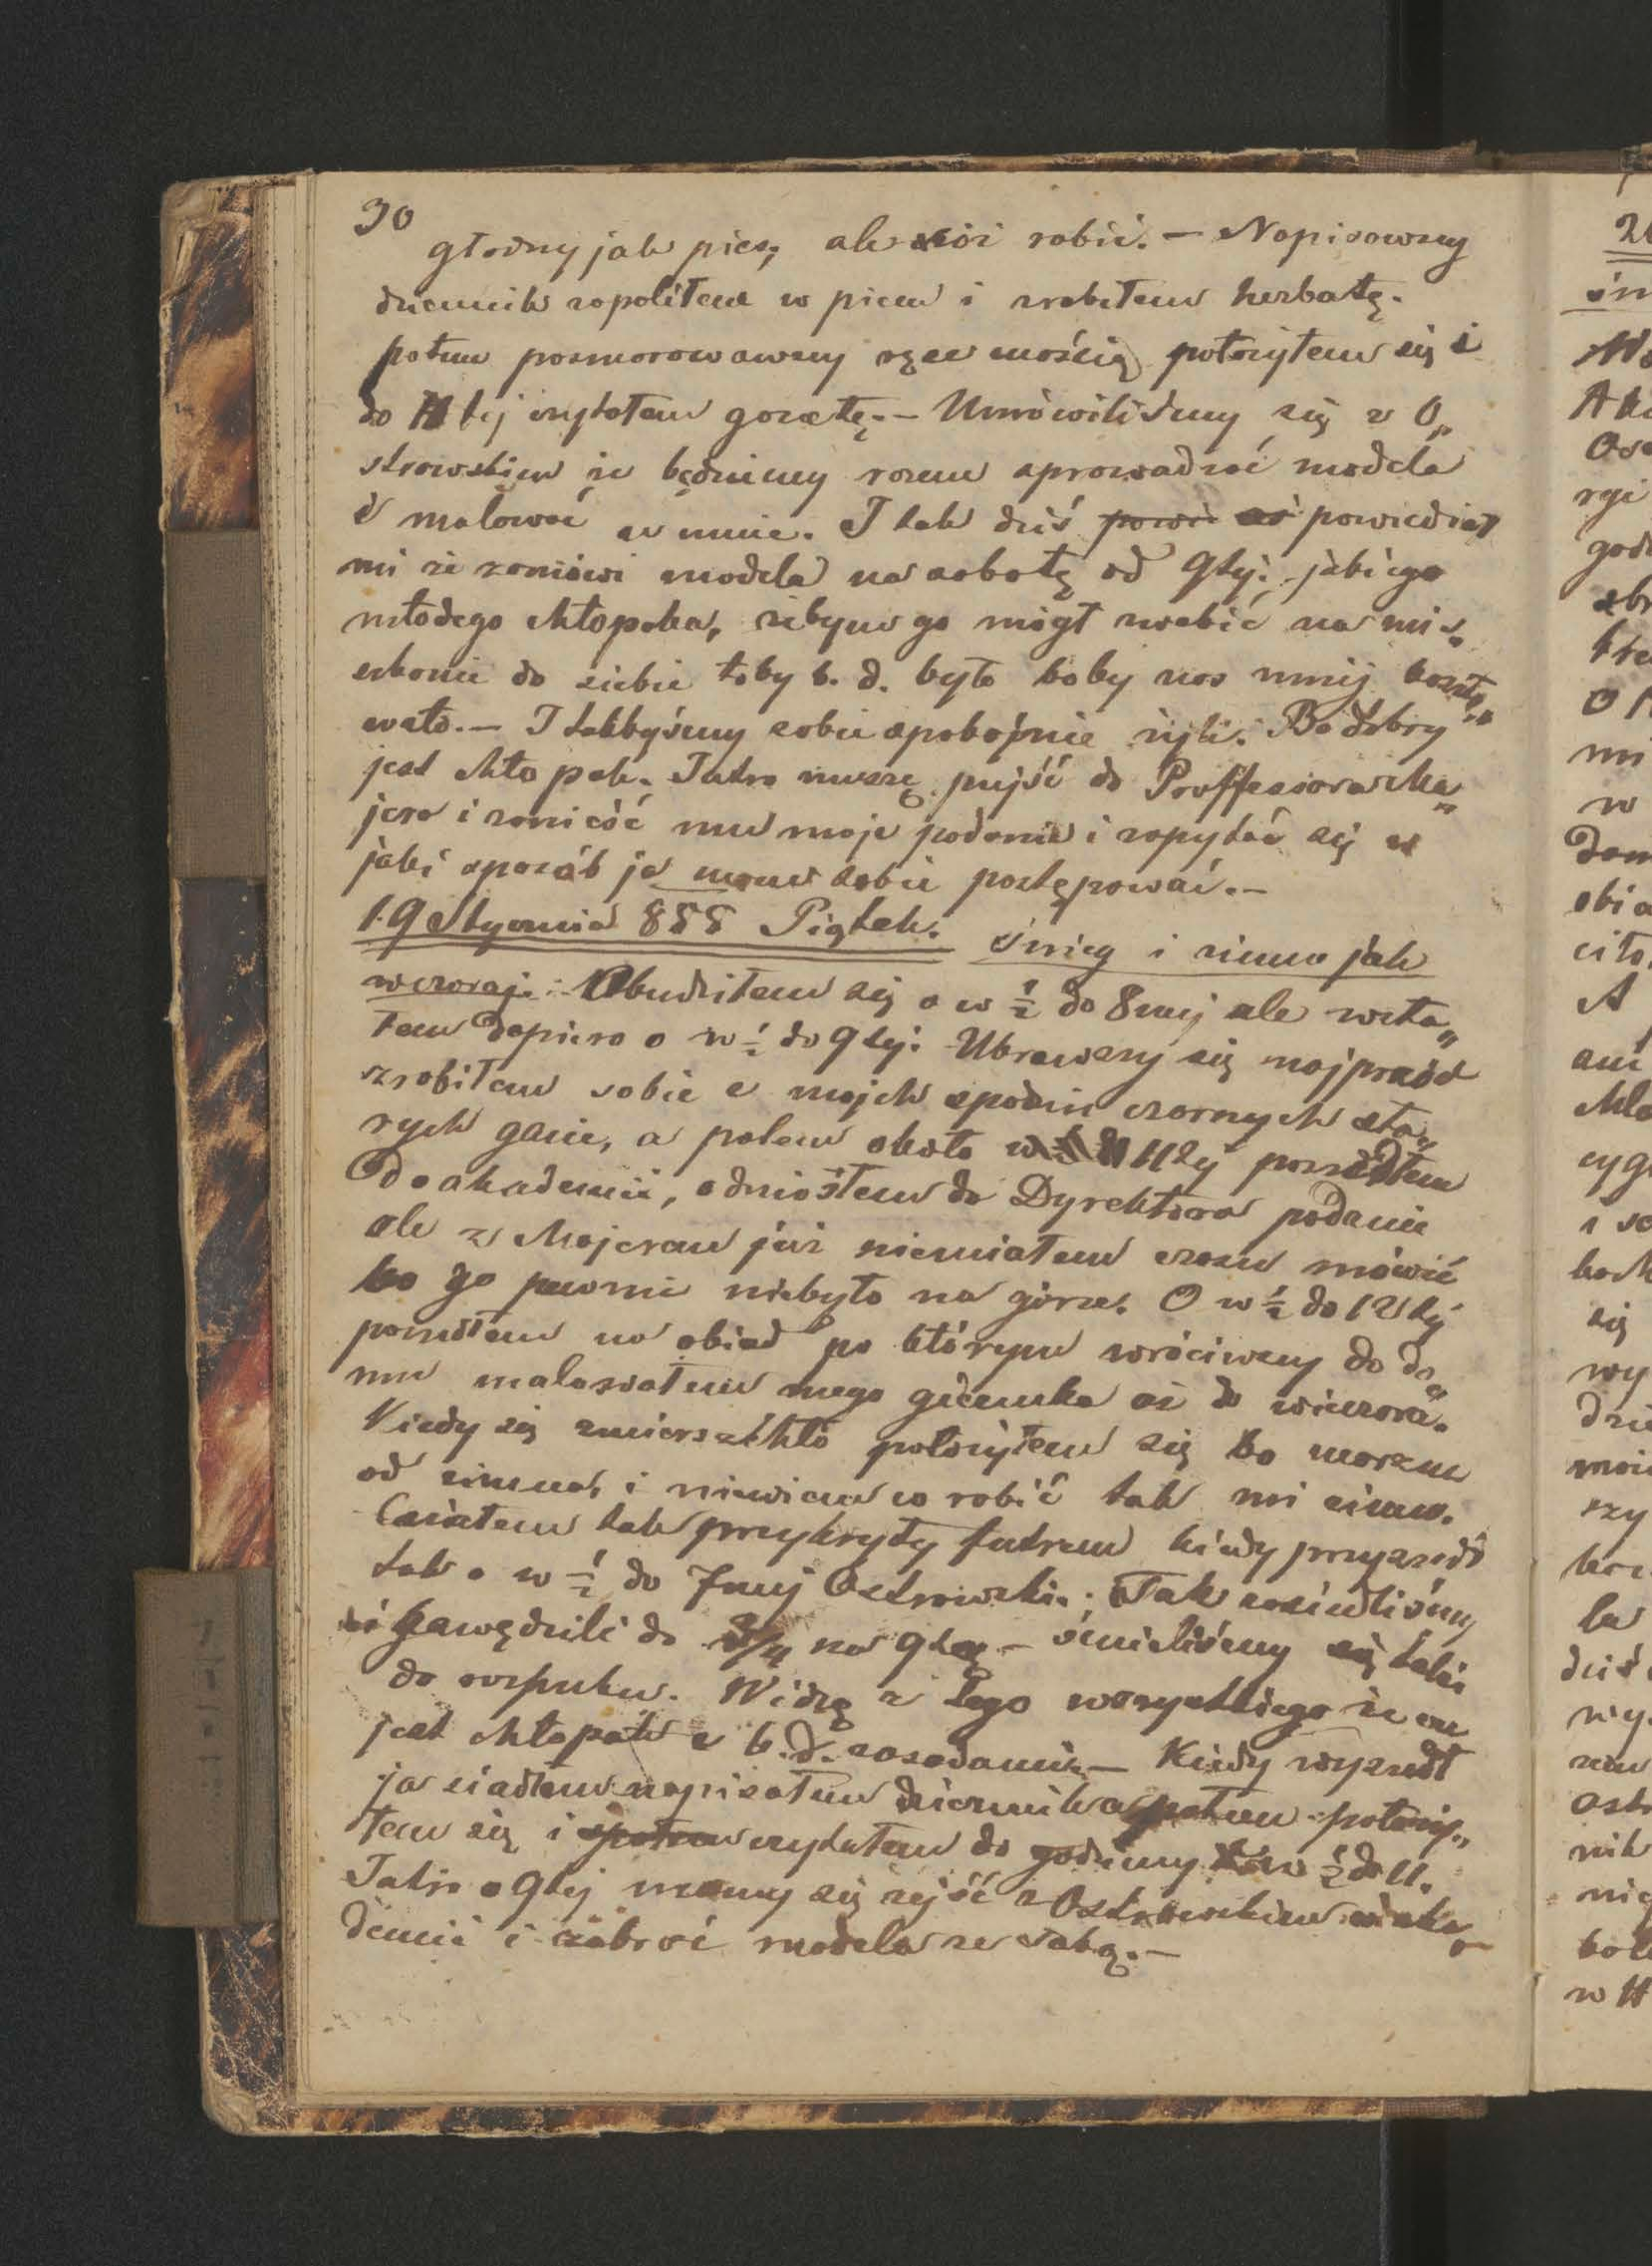 30
głodny jak pies, ale cóż robić. — Napisawszy
dziennik zapaliłem w piecu i zrobiłem herbatę.
potem posmarowawszy ręce maścią położyłem się i
do 11tej czytałem gazetę. — Umówiliśmy się z O„
strowskim że będziemy razem sprowadzać modela
i malować u mnie. I tak dziś powie powiedział
mi że zamówi modela na sobotę od 9tej. jakiego
młodego chłopaka, żebym go mógł zwabić na mie„
szkanie do siebie toby b. d. było boby nas mniej koszto„
wało. — I takbyśmy sobie spokojnie żyli. Bo dobry
jest chłopak. Jutro muszę pujść do Proffessora Ma„
jera i zanieść mu moje podanie i zapytać się w
jaki sposób ja mam sobie postępować. —
19 Stycznia 888 Piątek. śnieg i zimno jak
wczoraj. Obudziłem się o w ½ do 8mej ale wsta„
łem dopiero o w ½ do 9tej. Ubrawszy się najprzód
zrobiłem sobie z mojch spodni czarnych sta„
rych gacie, a potem około 11tej poszedłem
do akademii, odniosłem do Dyrektora podanie
ale z Majerem już niemiałem czasu mówić
bo go pewnie niebyło na górze. O w ½ do 12tej
poszedłem na obiad po którym wróciwszy do do„
mu malowałem mego giermka aż do wieczora.
Kiedy się zmierzchło położyłem się bo marzne
od zimna, i niewiem co robić tak mi zimno.
Leżałem tak przykryty futrem kiedy przyszedł
tak o w ½ do 7mej Ostrowski. Tak zasiedliśmy
i gawędzili do ¾ na 9tą — śmieliśmy się także
do rozpuku. Widzę z tego wszystkiego że on
jest chłopak z b. d. zasadami. — Kiedy wyszedł
ja siadłem napisałem dziennik a potem położy„
łem się i czytałem do godziny w ½ do 11.
Jutro o 9tej mamy się zejść z Ostrowskim w aka„
demii i zabrać modela ze sobą. —